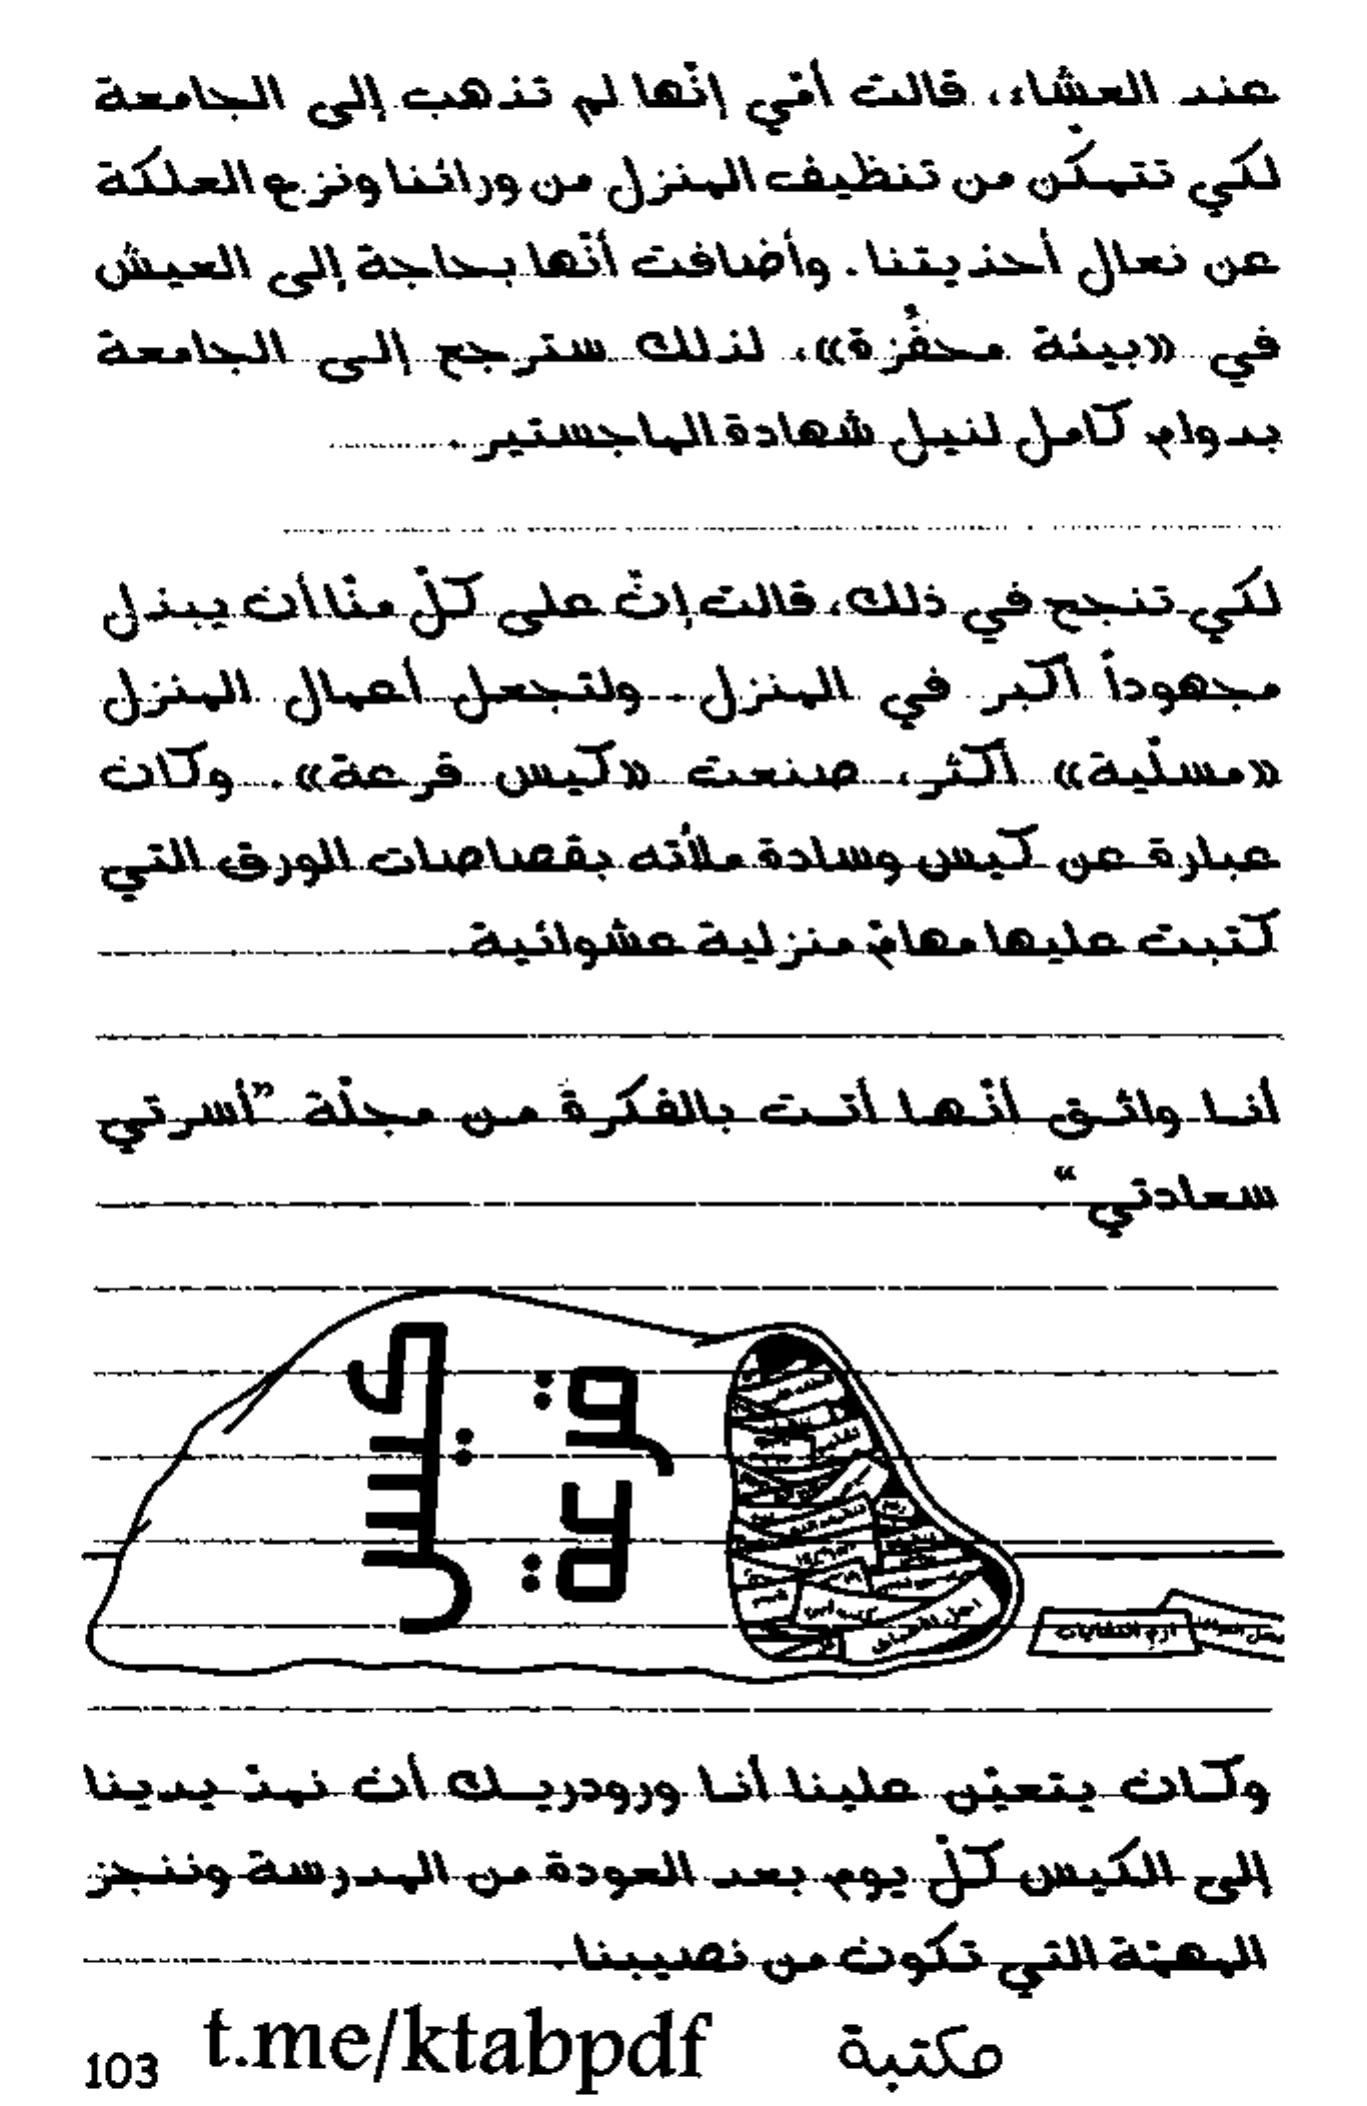 عند العشاء، قالت أمّي إنّها لم تذهب إلى الجامعة
لكي تتمكّن من تنظيف المنزل من ورائنا ونزع العلكة
عن نعال أحذيتنا. وأضافت أنّها بحاجة إلى العيش
في «بيئة محفّزة»، لذلك سترجع إلى الجامعة
بدوام كامل لنيل شهادة الماجستير.
لكي تنجح في ذلك، قالت إنّ على كلّ منّا أن يبذل
مجهوداً أكبر في المنزل. ولتجعل أعمال المنزل
«مسلّية» أكثر، صنعت «كيس قرعة». وكان
عبارة عن كيس وسادة ملأته بقصاصات الورق التي
كتبت عليها مهامّ منزلية عشوائية.
أنا واثق أنّها أتت بالفكرة من مجلّة ”أسرتي
سعادتي“.
كيس
قرعة
اجل الأطباق
ارمِ النفايات
وكان يتعيّن علينا أنا ورودريك أن نمدّ يدينا
إلى الكيس كلّ يوم بعد العودة من المدرسة وننجز
المهمّة التي تكون من نصيبنا.
مكتبة t.me/ktabpdf
103